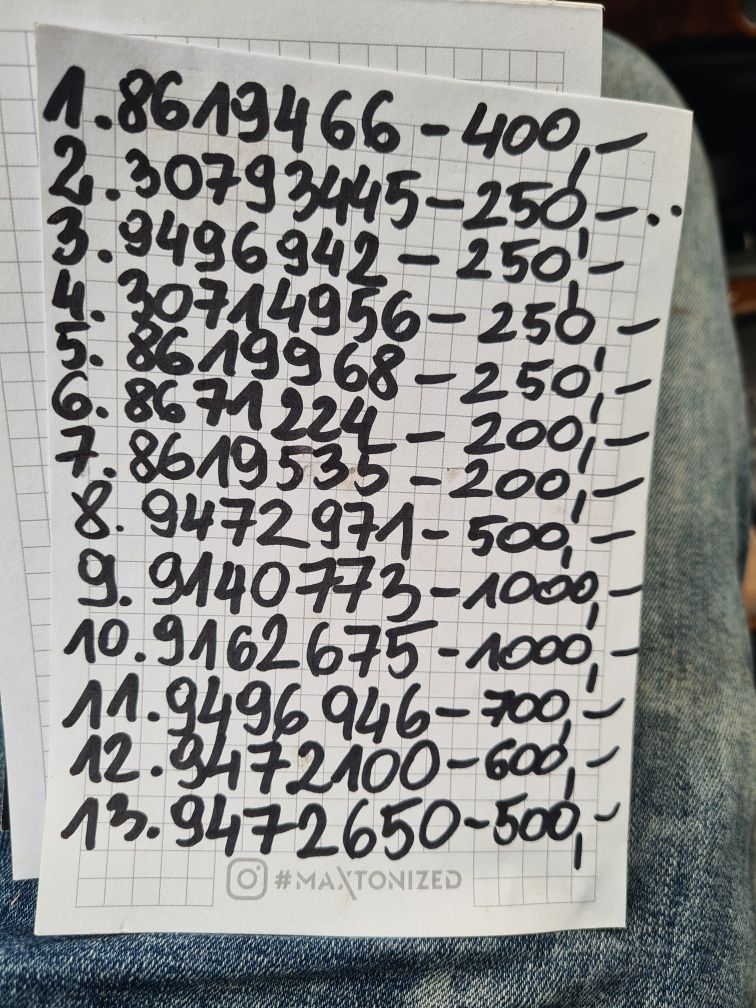 1.8619466-400,-
2.30793445-250,-..
3.9496942-250,-
4.30714956-250,-
5.8619968-250,-
6.8671224-200,-
7.8619535-200,-
8.9472971-500,-
9.9140773-1000,-
10.9162675-1000,-
11.9496946-700,-
12.9472100-600,-
13.9472650-500,-
#MAXTONIZED